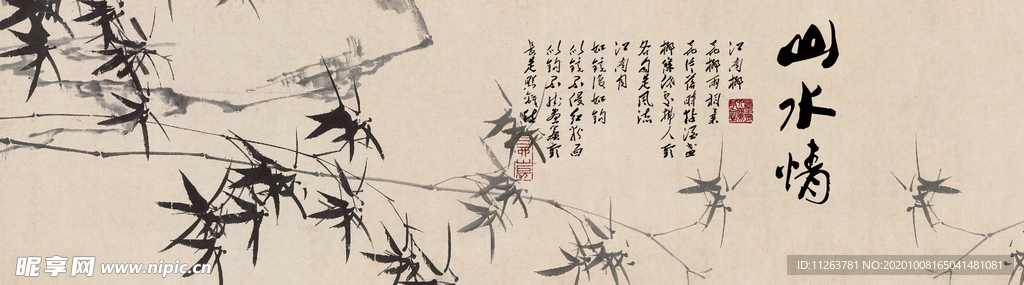 山水情
江南柳
花柳两相柔
花片落时黏酒盏
柳条低处拂人头
各自是风流
江南月
如镜复如钩
似镜不侵红粉面
似钩不挂画帘头
长是照离愁
昵享网 www.nipic.cn
ID:11263781 NO:20201008165041481081